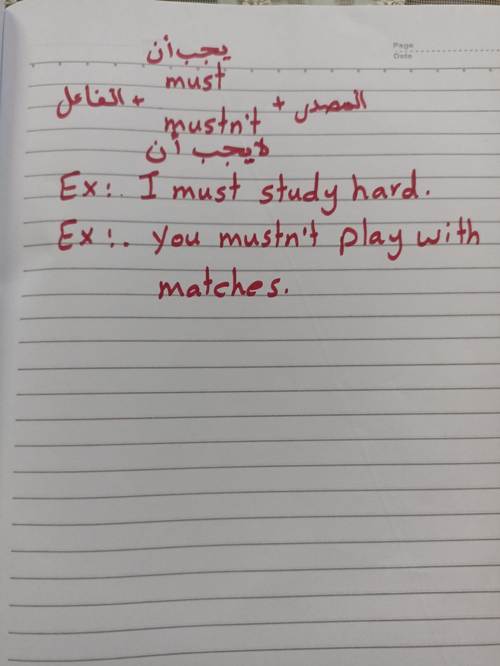 Page
Date
يجب أن
must
الفاعل + + المصدر
mustn't
لا يجب أن
Ex:. I must study hard.
Ex:. you mustn't play with
matches.